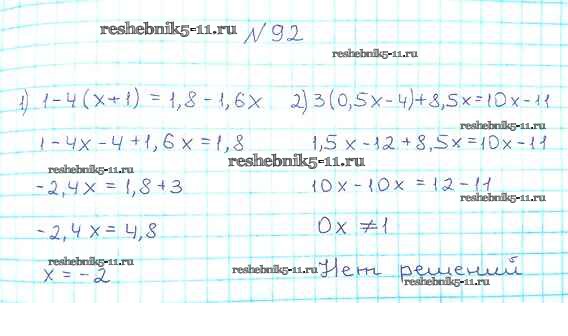 reshebnik5-11.ru №92
reshebnik5-11.ru
1) 1-4(x+1)=1,8-1,6x 2) 3(0,5x-4)+8,5x=10x-11
reshebnik5-11.ru
1-4x-4+1,6x=1,8 1,5x-12+8,5x=10x-11
reshebnik5-11.ru
reshebnik5-11.ru
-2,4x=1,8+3 10x-10x=12-11
reshebnik5-11.ru
-2,4x=4,8 0x≠1
reshebnik5-11.ru
x=-2 reshebnik5-11.ru Нет решений
reshebnik5-11.ru